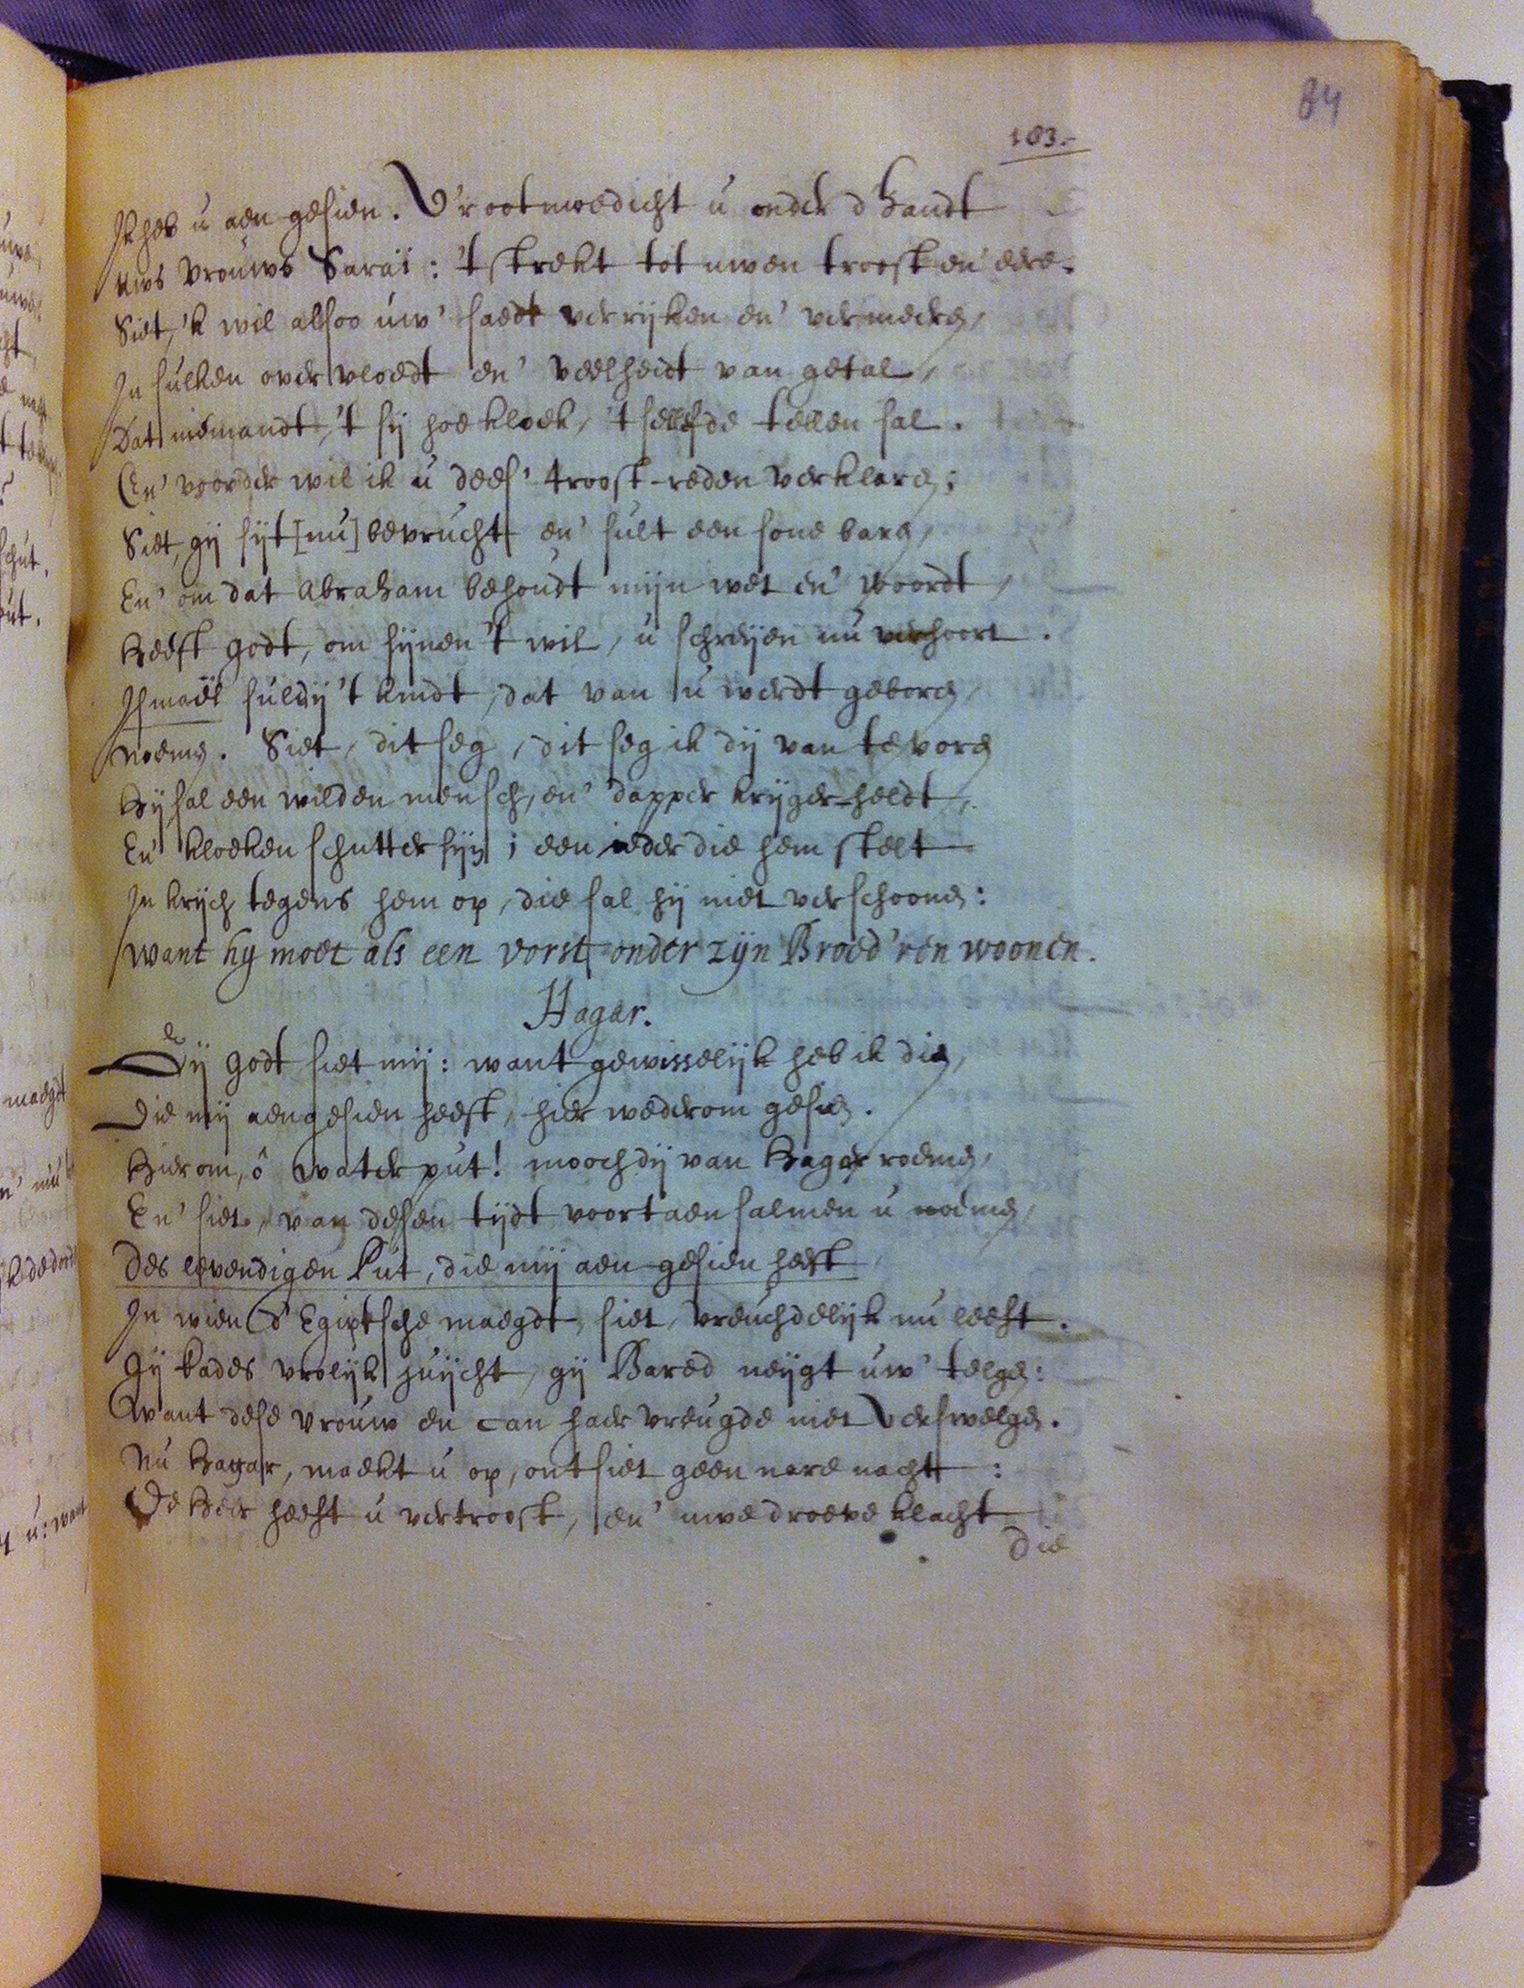 84
183.-
Ik heb u aen gesien. V'rootmoedicht u onder d'handt
uws vrouws Saraï: 't strekt tot uwen troost en' eere.
Siet, 'k wil alsoo uw' saedt verrijken en' vermeeren,
In sulken overvloedt en' veelheidt van getal,
Dat niemandt, 't sij hoe kloek, 't selefde tellen sal.
En' voorder wil ik u dees' troost-reden verklaren;
Siet, gij sijt [nu] bevrucht en' sult een sone baren,
En' om dat Abraham behoudt mijn wet en' woordt,
Heeft godt, om sijnen 't wil, u schreijen nu verhoort.
Ismaël suldij 't kindt, dat van u werdt geboren,
noemen. Siet, dit seg, dit seg ik dij van te voren
Hij sal een wilden mensch, en' dapper krijger-heldt,
En' kloeken schutter sijn; een ieder die hem stelt
In krijch tegens hem op, die sal hij niet verschoonen:
want hy moet als een vorst onder zijn Broed'ren woonen.
Hagar.
Gij godt siet mij: want gewisselijk heb ik dien,
Die mij aengesien heeft, hier wederom gesien.
Hierom, ô waterput! moochdij van Hagar roemen,
En' siet, van desen tijdt voortaen salmen u noemen,
Des levendigen Put, die mij aen gesien heeft
In wien d'Egiptsche maegdt, siet, vreuchdelijk nu leeft.
Gij Kades vrolijk juijcht, gij Bared neijgt uw' telgen:
Want dese vrouw en can haer vreugde niet verswelgen.
Nu Hagar, maekt u op, ontsiet geen nare nacht:
De Heer heeft u vertroost, en' uwe droeve klacht
Die